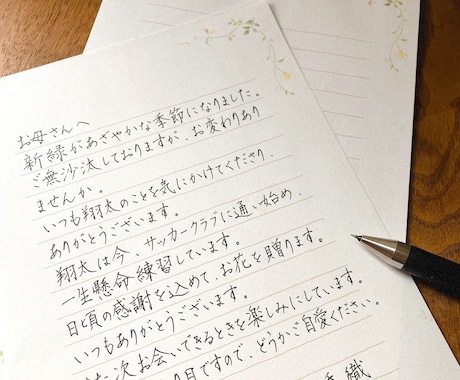 お母さんへ
新緑があざやかな季節になりました。
ご無沙汰しておりますが、お変わりあり
ませんか。
いつも翔太のことを気にかけてくださり、
ありがとうございます。
翔太は今、サッカークラブに通い始め、
一生懸命練習しています。
日頃の感謝を込めて、お花を贈ります。
いつもありがとうございます。
た次お会いできるときを楽しみにしています。
目ですので、どうかご自愛ください。
織